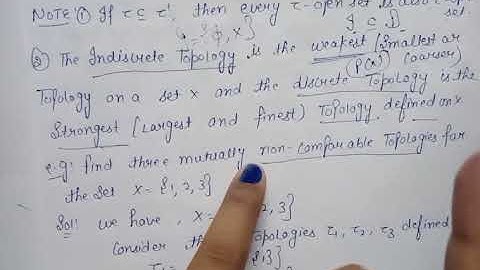 NOTE: ① If τ ⊆ τ', then every τ-open set is also
set.
= {ϕ, X}
I ⊆ D
② The Indiscrete Topology is the weakest (Smallest or
(P(X)) Coarser)
Topology on a set X and the discrete Topology is the
Strongest (Largest and finest) Topology defined on X
e.g: find three mutually non-comparable Topologies for
the Set X = {1, 2, 3}
Sol: we have, X = 2, 3}
Consider Topologies τ1, τ2, τ3 defined
τ1 =